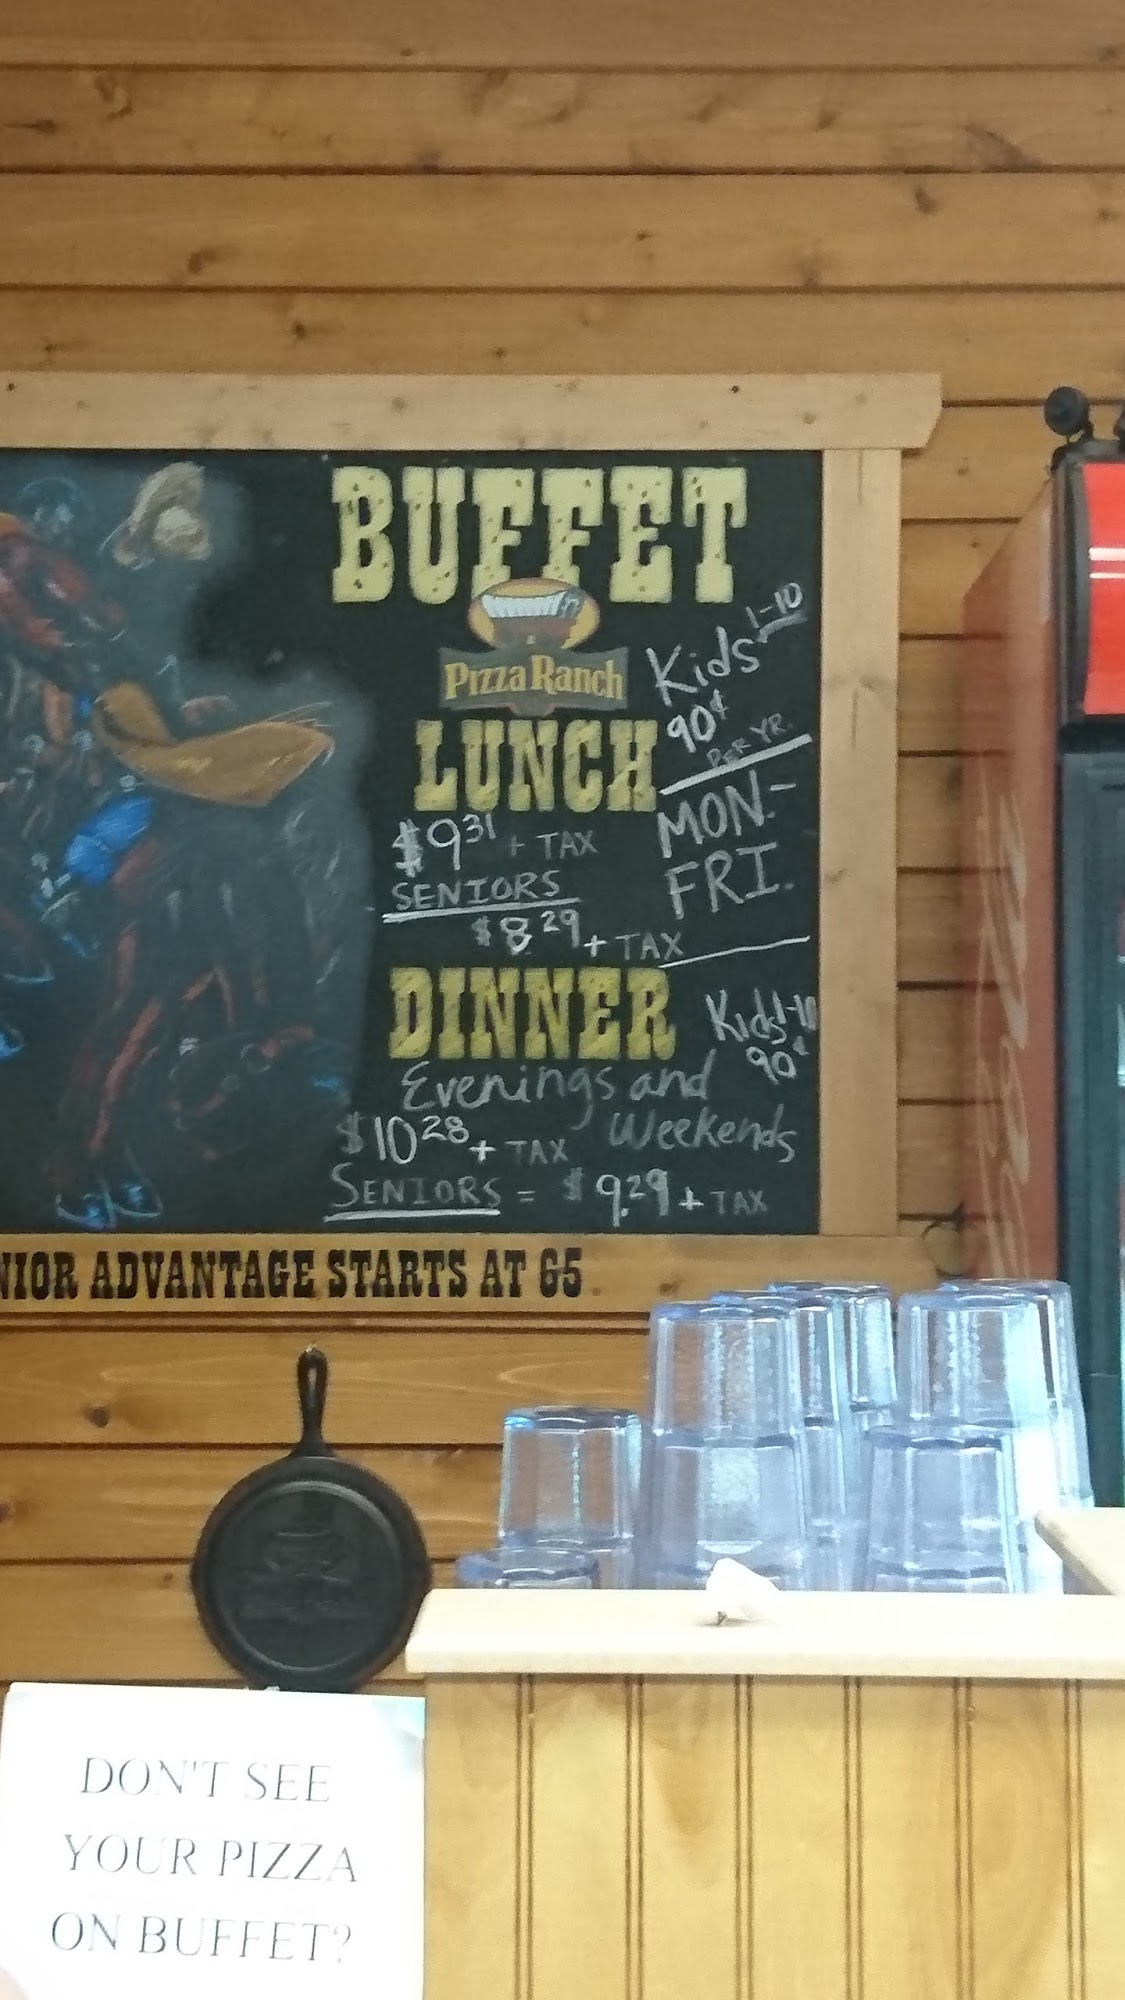 BUFFET
Pizza Ranch
Kids 1-10
90¢
PER YR.
LUNCH
MON.-
FRI.
$9.31 + TAX
SENIORS
$8.29 + TAX
DINNER
Kids 1-10
90¢
Evenings and
Weekends
$10.28 + TAX
SENIORS = $9.29 + TAX
NIOR ADVANTAGE STARTS AT 65
DON'T SEE
YOUR PIZZA
ON BUFFET?